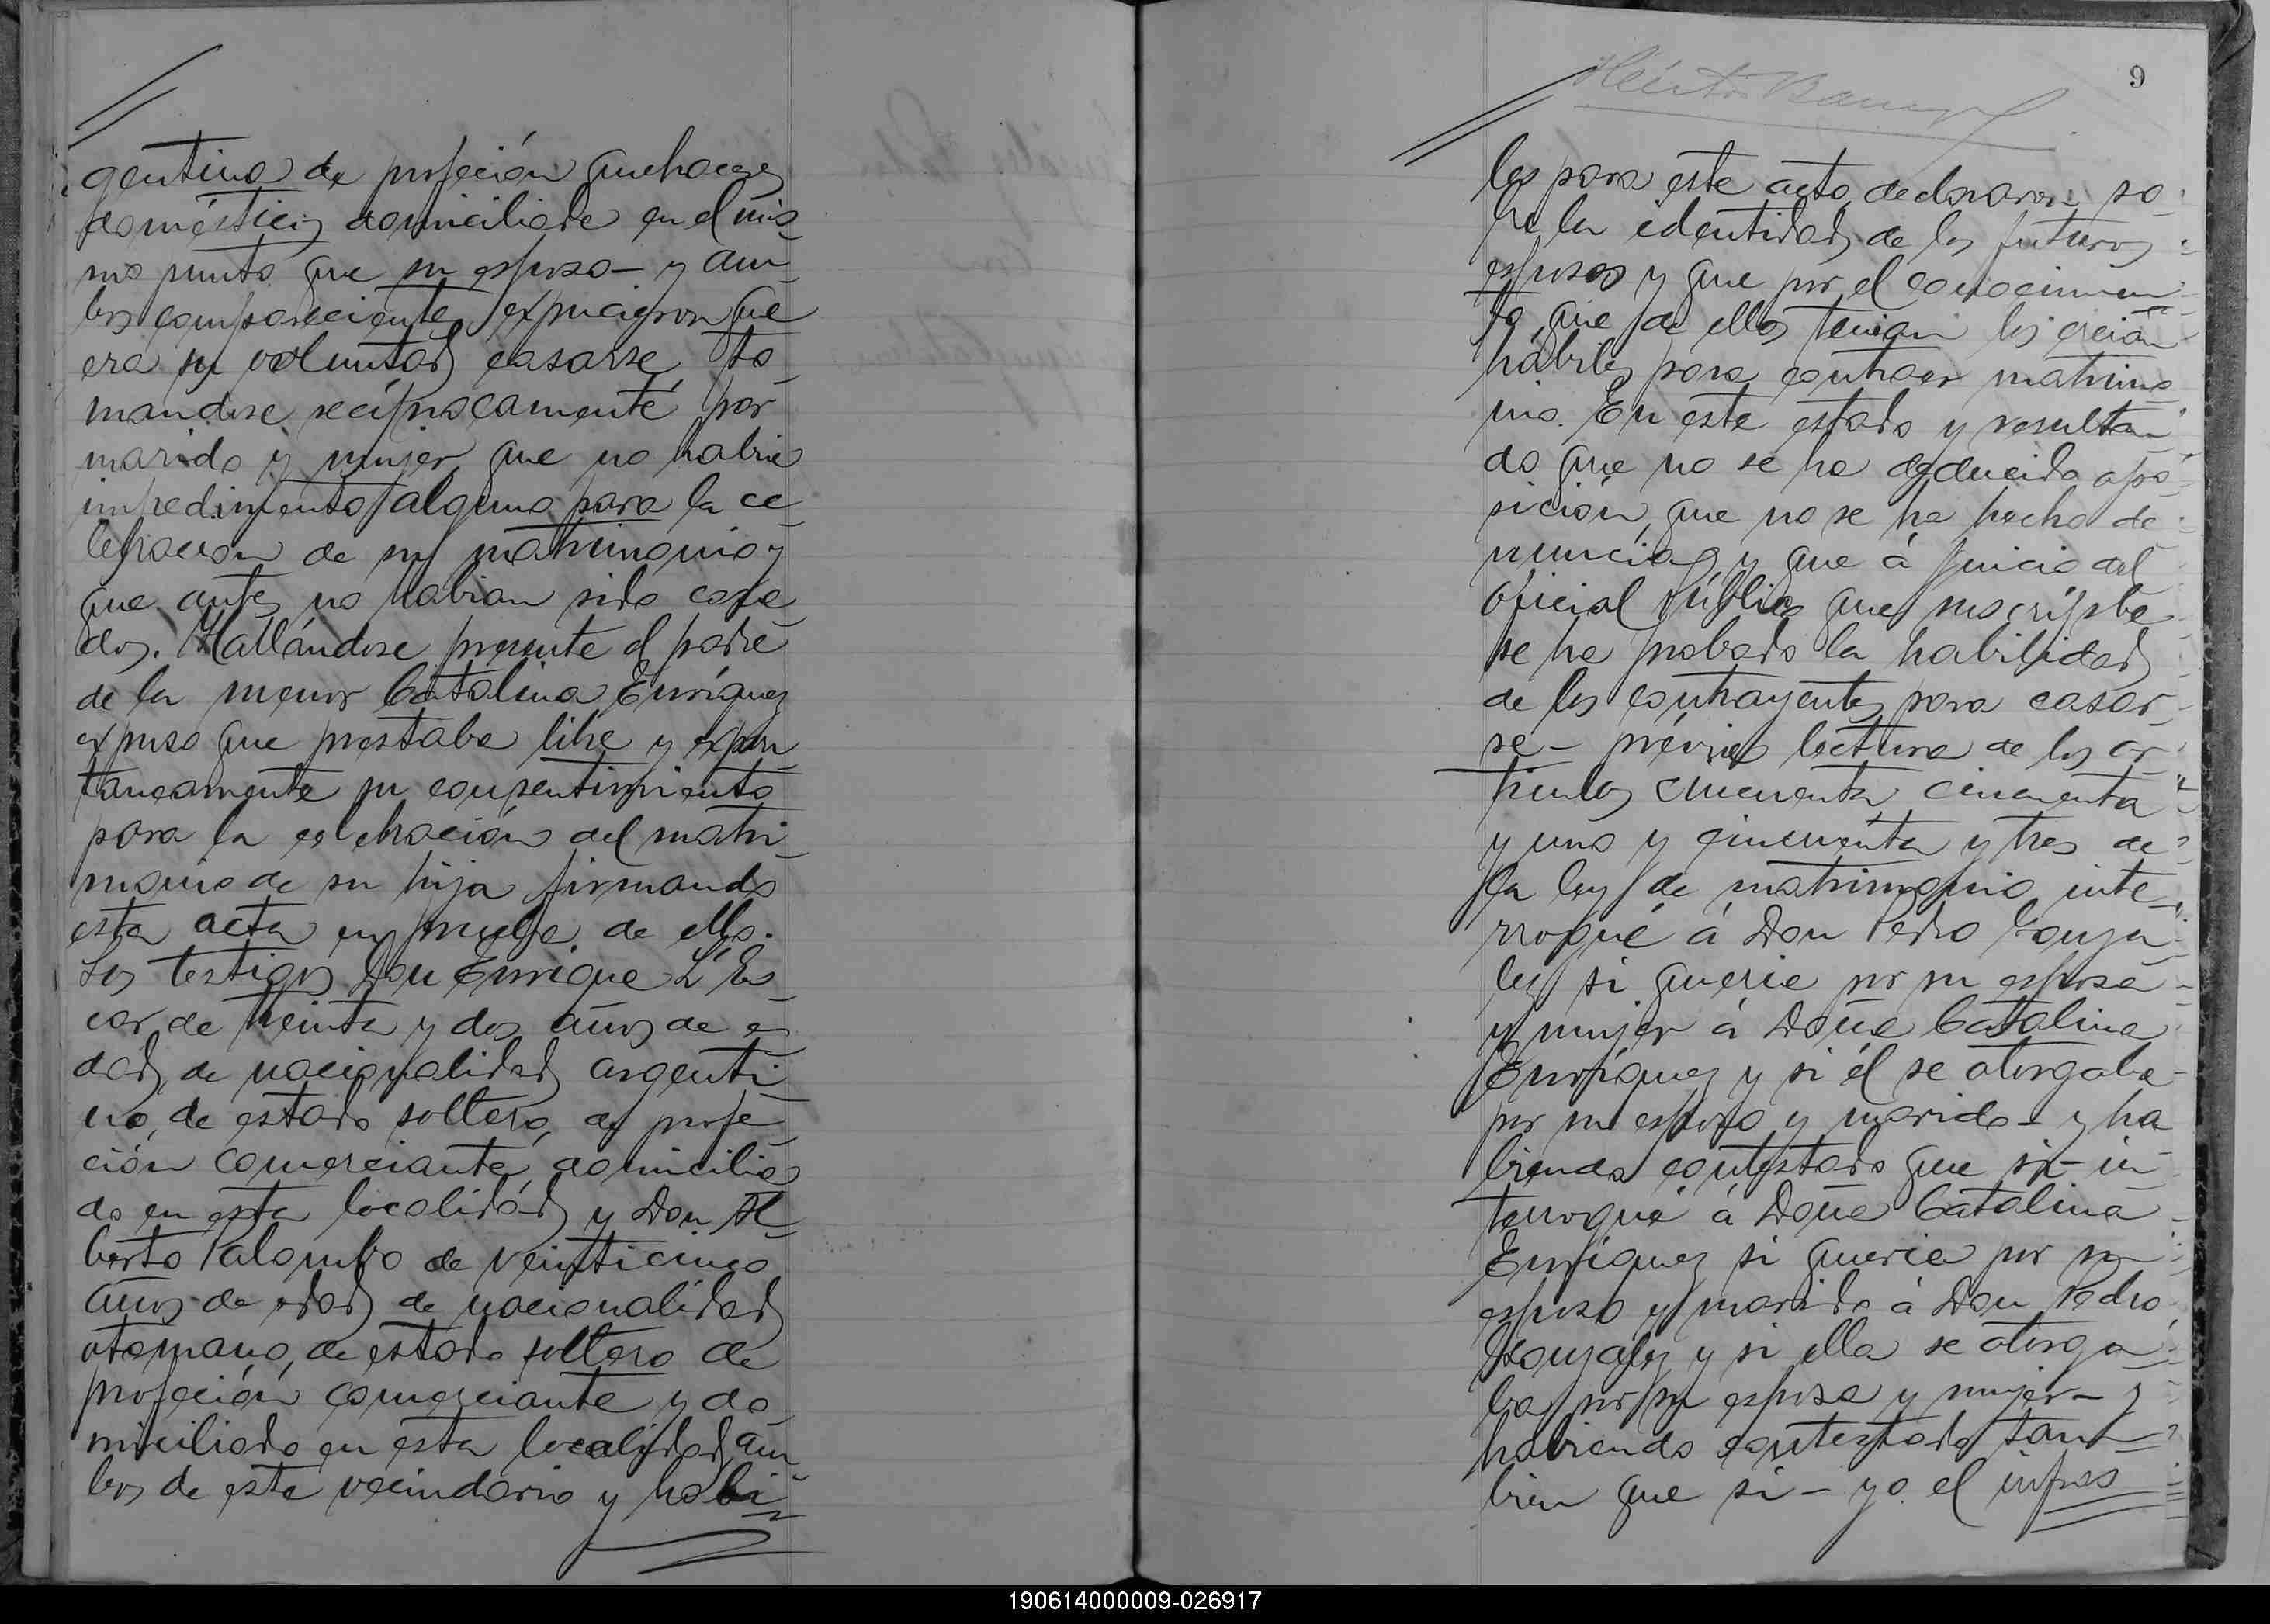 gentina de profeción quehaceres
domésticos domiciliada en el mis
mo punto que su esposo - y am
bos comparecientes expucieron que
era su voluntad casarse, to
mandose recíprocamente por
marido y mujer, que no habia
impedimento alguno para la ce
lebracion de su matrimonio y
que antes no habian sido casa
dos. Hallándose presente el padre
de la menor Catalina Enríquez
expuso que prestaba libre y expon
taneamente su consentimiento
para la celebración del matri
monio de su hija firmando
esta acta en prueba de ello.
Los testigos Don Enrique L'Es
car de treinta y dos años de e
dad, de nacionalidad argenti
no, de estado soltero, de profe
ción comerciante, domicilia
do en esta localidad y Don Al
berto Palombo de veinticinco
años de edad de nacionalidad
otomano, de estado soltero de
profeción comerciante y do
miciliado en esta localidad, am
bos de este vecindario y hábi
9
les para este acto, declararon so
bre la identidad de los futuros
esposos y que por el conocimien
to que de ellos tenian los creian
hábiles para contraer matrimo
nio. En este estado y resultan
do que no se ha deducido opo
sición, que no se ha hecho de
nuncias y que á juicio del
oficial público que suscribe
se ha probado la habilidad
de los contrayentes para casar
se - prévia lectura de los ar
tículos cincuenta, cincuenta
y uno y cincuenta y tres de
la ley de matrimonio, inte
rrogué á Don Pedro Gonza
lez si queria por su esposa
y mujer á Doña Catalina
Enríquez y si él se otorgaba
por su esposo y marido - y ha
biendo contestado que si - in
terrogué á Doña Catalina
Enríquez si queria por su
esposo y marido á Don Pedro
Gonzalez y si ella se otorga
ba por su esposa y mujer - y
habiendo contestado tam
bien que si - yo el infras
190614000009-026917